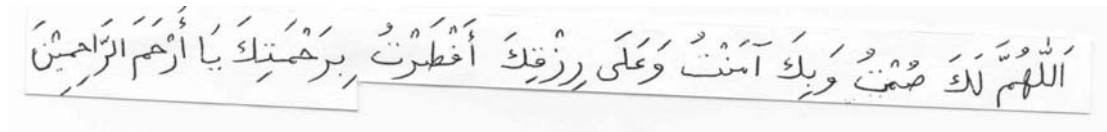 اَللّٰهُمَّ لَكَ صُمْتُ وَبِكَ آمَنْتُ وَعَلَى رِزْقِكَ أَفْطَرْتُ بِرَحْمَتِكَ يَا أَرْحَمَ الرَّاحِمِيْنَ